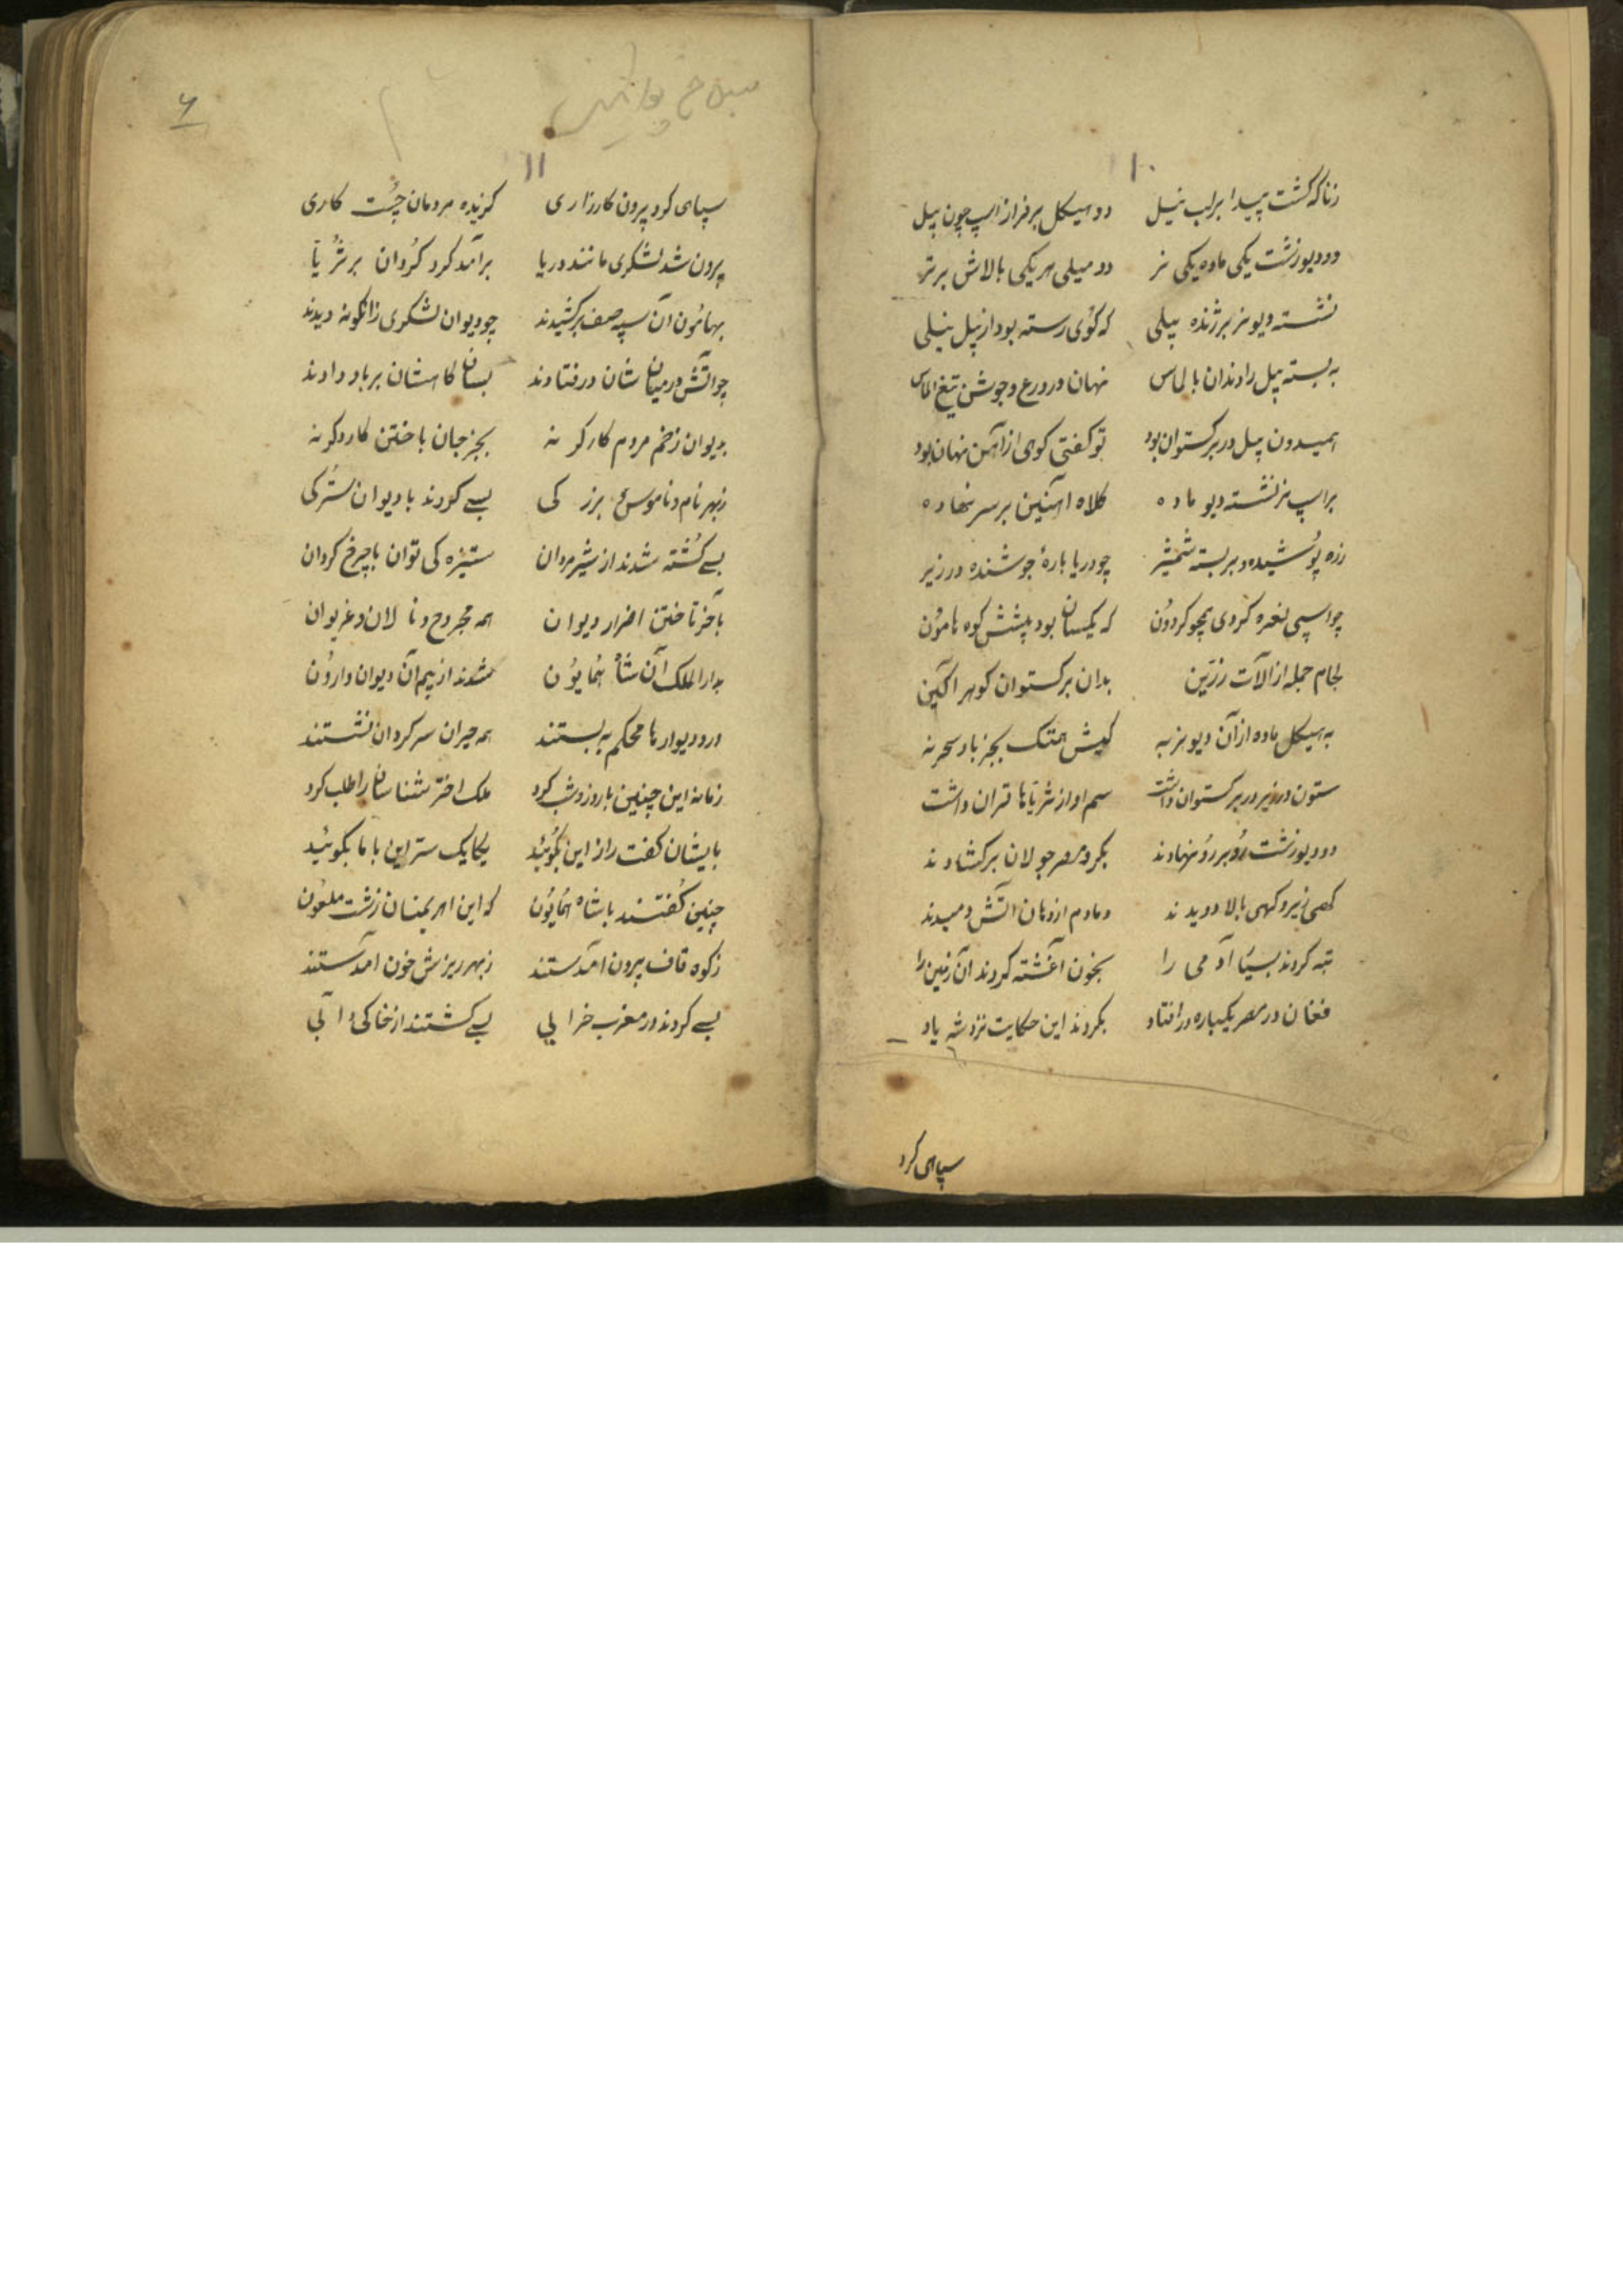 ۱۰
زناگه گشت پیدا بر لب نیل دو هیکل بر فراز اسپ چون پیل
دو دیو زشت یکی ماده یکی نر دو میلی هر یکی بالاش برتر
نشسته دیو نر بر ژنده پیلی که کوی رسته بود از پیل نیلی
به بسته پیل را دندان بالماس نهان در درع و جوشن تیغ الماس
همیدون پیل در برکستوان بود تو کفتی کوی از آهن نهان بود
بر اسپ نر نشسته دیو ماده کلاه آهنین بر سر نهاده
زره پوشیده و بر بسته شمشیر چو دریا بارهٔ جوشنده در زیر
چو اسپی نعره کردی همچو کردون که یکسان بود پیشش کوه هامون
لجام جمله از آلات زرین بدان برکستوان کوهر آکین
به هیکل ماده از آن دیو نر به کهیش همتک بجز باد سحر نه
ستون در زیر در برکستوان داشت سم او از ثریا ها قران داشت
دو دیو زشت رو بر رو نهادند بکرد مصر جولان برکشادند
کهی زیر و کهی بالا دویدند دمادم از دهان آتش دمیدند
تبه کردند بسیا آدمی را بخون آغشته کردند آن زمین را
فغان در مصر یکباره در افتاد بکردند این حکایت نزد شه یاد
سپاهی کرد
۶
۱۱
سپاهی کرد بیرون کارزاری کزیده مردمان چست کاری
بیرون شد لشکری مانند دریا برآمد کرد کردان بر ثریا
بهامون آن سپه صف برکشیدند چو دیوان لشکری زانکونه دیدند
چو آتش در میان شان در فتادند بسان کاهشان بر باد دادند
بدیوان زخم مردم کارکر نه بجز جان باختن کار دکر نه
ز بهر نام و ناموس بزرکی بسی کردند با دیوان سترکی
بسی کشته شدند از شیرمردان ستیزه کی توان با چرخ کردان
بآخر تاختن اضرار دیوان همه مجروح و نالان و غریوان
بدارالملک آن شاه همایون شدند از بیم آن دیوان وارون
در و دیوارها محکم به بستند همه حیران سرکردان نشستند
زمانه این چنین با روز و شب کرد ملک اخترشناسان را طلب کرد
بایشان کفت راز این بکوئید یکایک سر این با ما بکوئید
چنین کفتند با شاه همایون که این اهریمنان زشت ملعون
ز کوه قاف بیرون آمدستند ز بهر ریزش خون آمدستند
بسی کردند در مغرب خرابی بسی کشتند از خاکی و آبی